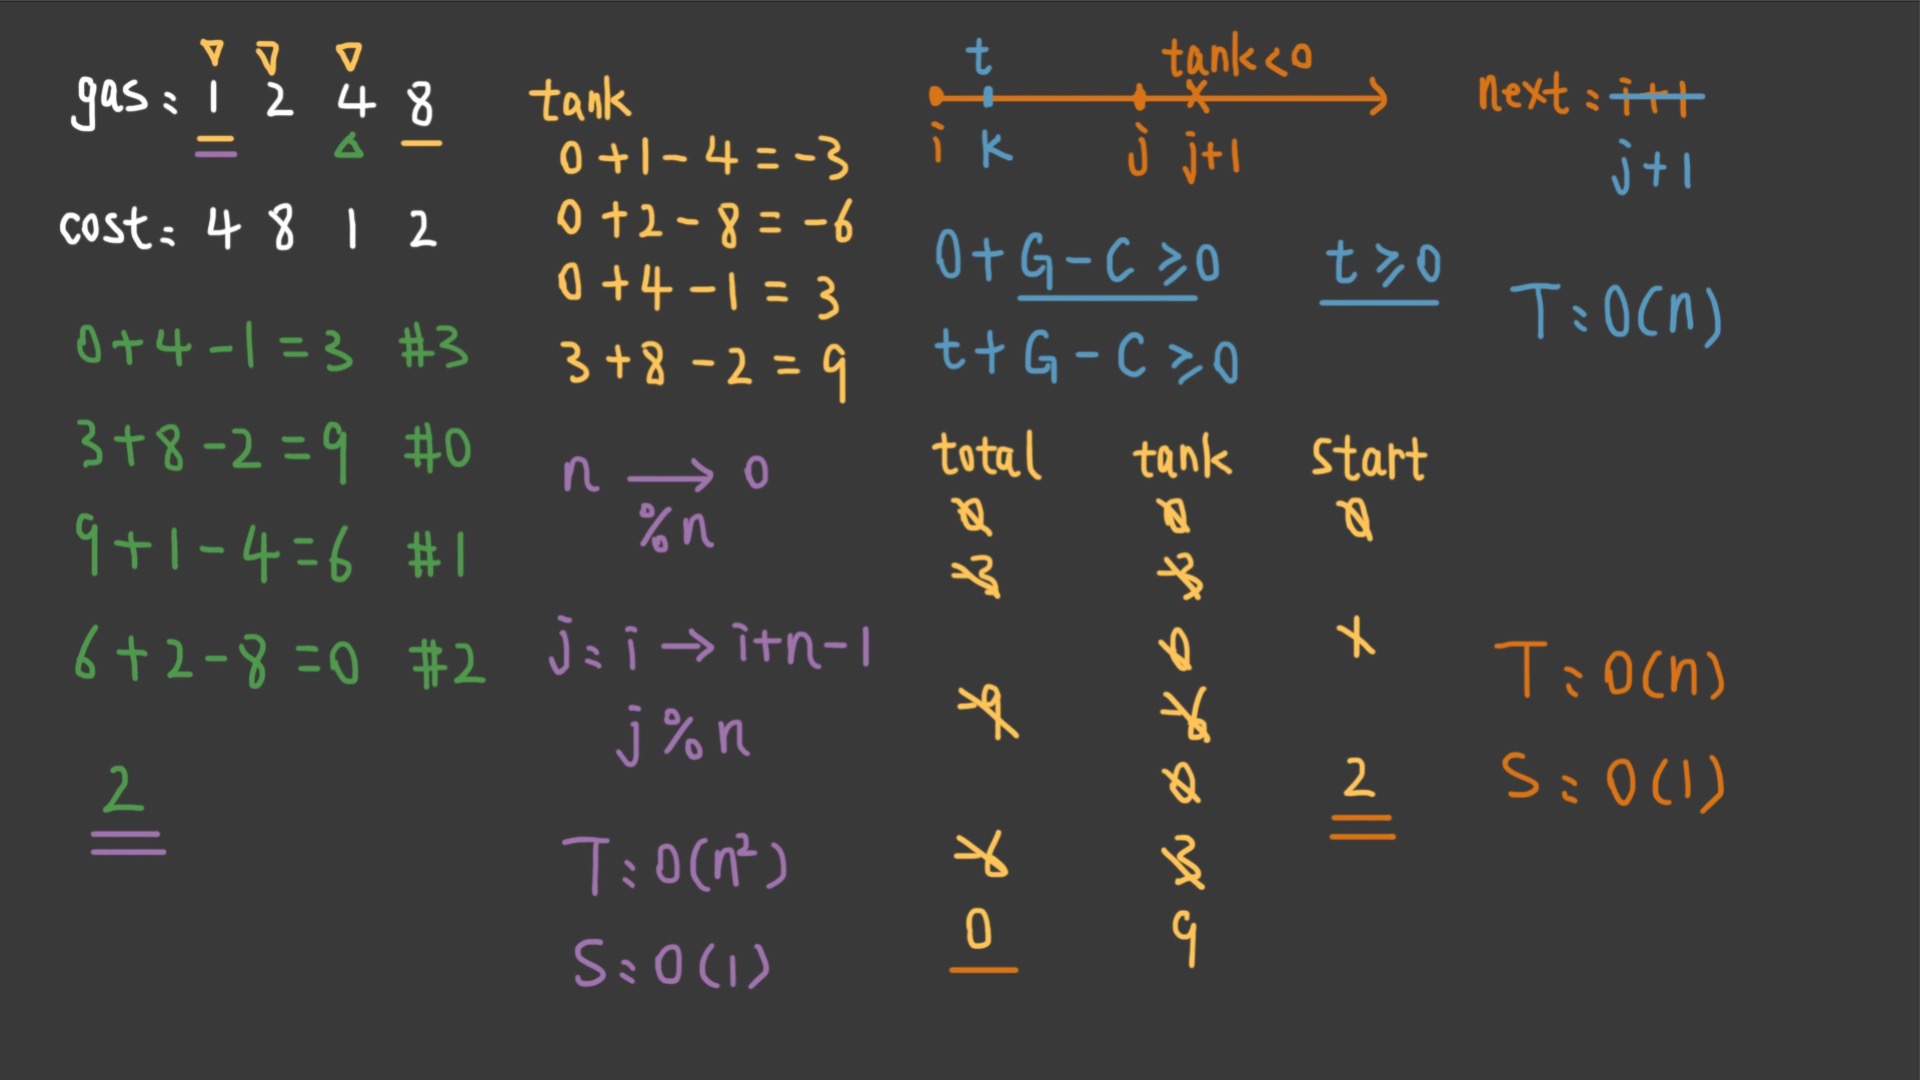 gas: 1 2 4 8
cost: 4 8 1 2
0+4-1=3 #3
3+8-2=9 #0
9+1-4=6 #1
6+2-8=0 #2
2
tank
0+1-4=-3
0+2-8=-6
0+4-1=3
3+8-2=9
n → 0
%n
j: i → i+n-1
j%n
T: O(n²)
S: O(1)
t tank<0
i k j j+1
0+G-C≥0 t≥0
t+G-C≥0
next: i+1
j+1
T: O(n)
total tank start
0 0 0
-3 -3
0 1
-9 -6
0 2
-6 3
0 9
T: O(n)
S: O(1)